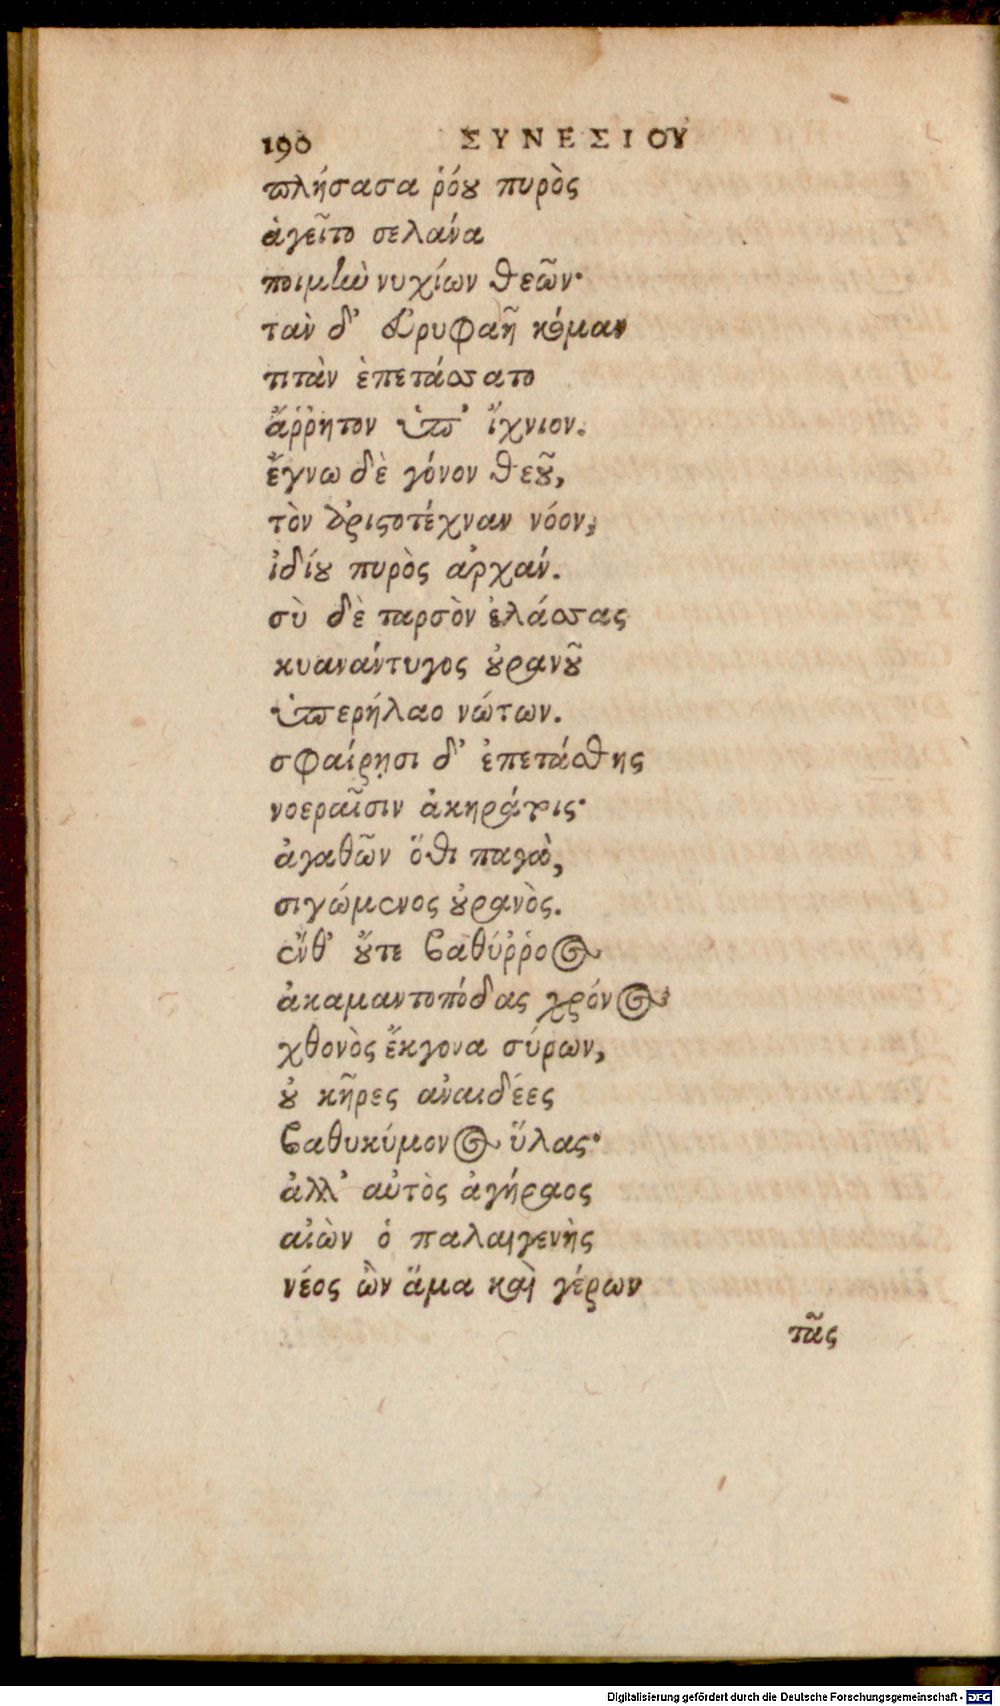 190 ΣΥΝΕΣΙΟΥ
πλήσασα ῥόου πυρὸς
ἁγεῖτο σελάνα
ποιμὴν νυχίων θεῶν·
τὰν δ' εὐρυφαῆ κόμαν
τιτὰν ἐπετάσσατο
ἄῤῥητον ὑπ' ἴχνιον.
ἔγνω δὲ γόνον θεοῦ,
τὸν ἀριστοτέχναν νόον,
ἰδίου πυρὸς ἀρχάν.
σὺ δὲ ταρσὸν ἐλάσσας
κυανάντυγος οὐρανοῦ
ὑπερήλαο νώτων.
σφαίρῃσι δ' ἐπετάσθης
νοεραῖσιν ἀκηράτοις·
ἀγαθῶν ὅθι παγὰ,
σιγώμενος οὐρανὸς.
ἔνθ' οὔτε βαθύῤῥοος
ἀκαμαντοπόδας χρόνος
χθονὸς ἔκγονα σύρων,
οὐ κῆρες ἀναιδέες
βαθυκύμονος ὕλας·
ἀλλ' αὐτὸς ἀγήραος
αἰὼν ὁ παλαιγενὴς
νέος ὢν ἅμα καὶ γέρων
τᾶς
Digitalisierung gefördert durch die Deutsche Forschungsgemeinschaft - DFG